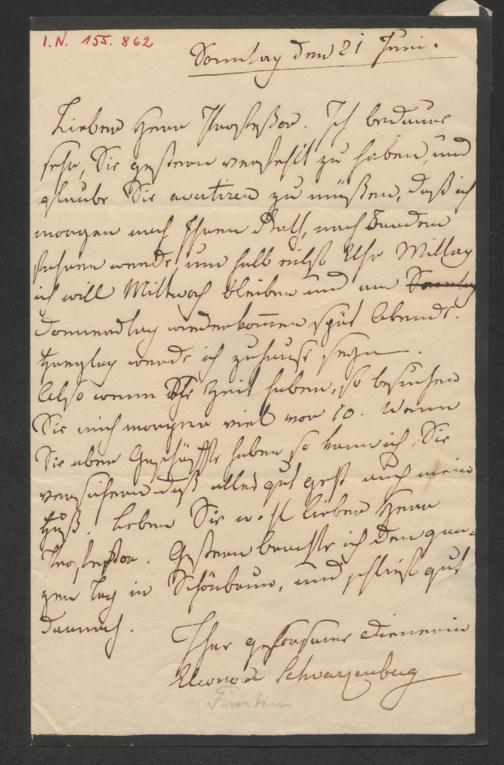 I.N. 155.862
Sonntag den 21 Juni.
Lieber Herr Professor. Ich bedaure
sehr, Sie gestern verfehlt zu haben, und
glaube Sie avertiren zu müßen, daß ich
morgen nach Ihrem Rath, nach Baaden
fahren werde, um halb Uhr Mittag
ich will Mittwoch bleiben und am Sonntag
Donnerstag wiederkommen spät Abends.
Freytag werde ich zuhause seyn.
Also wenn Sie Zeit haben, so besuchen
Sie mich morgen viel vor 10. Wenn
Sie aber Geschäffte haben so kann ich Sie
versichern daß alles gut geht auch mein
Fuß. Leben Sie wohl lieber Herr
Professor. Gestern brachte ich den gan-
zen Tag in Schönbrun, und schlief gut
darnach.
Ihre gehorsame Dienerin
Eleonore Schwarzenberg
Fürstin